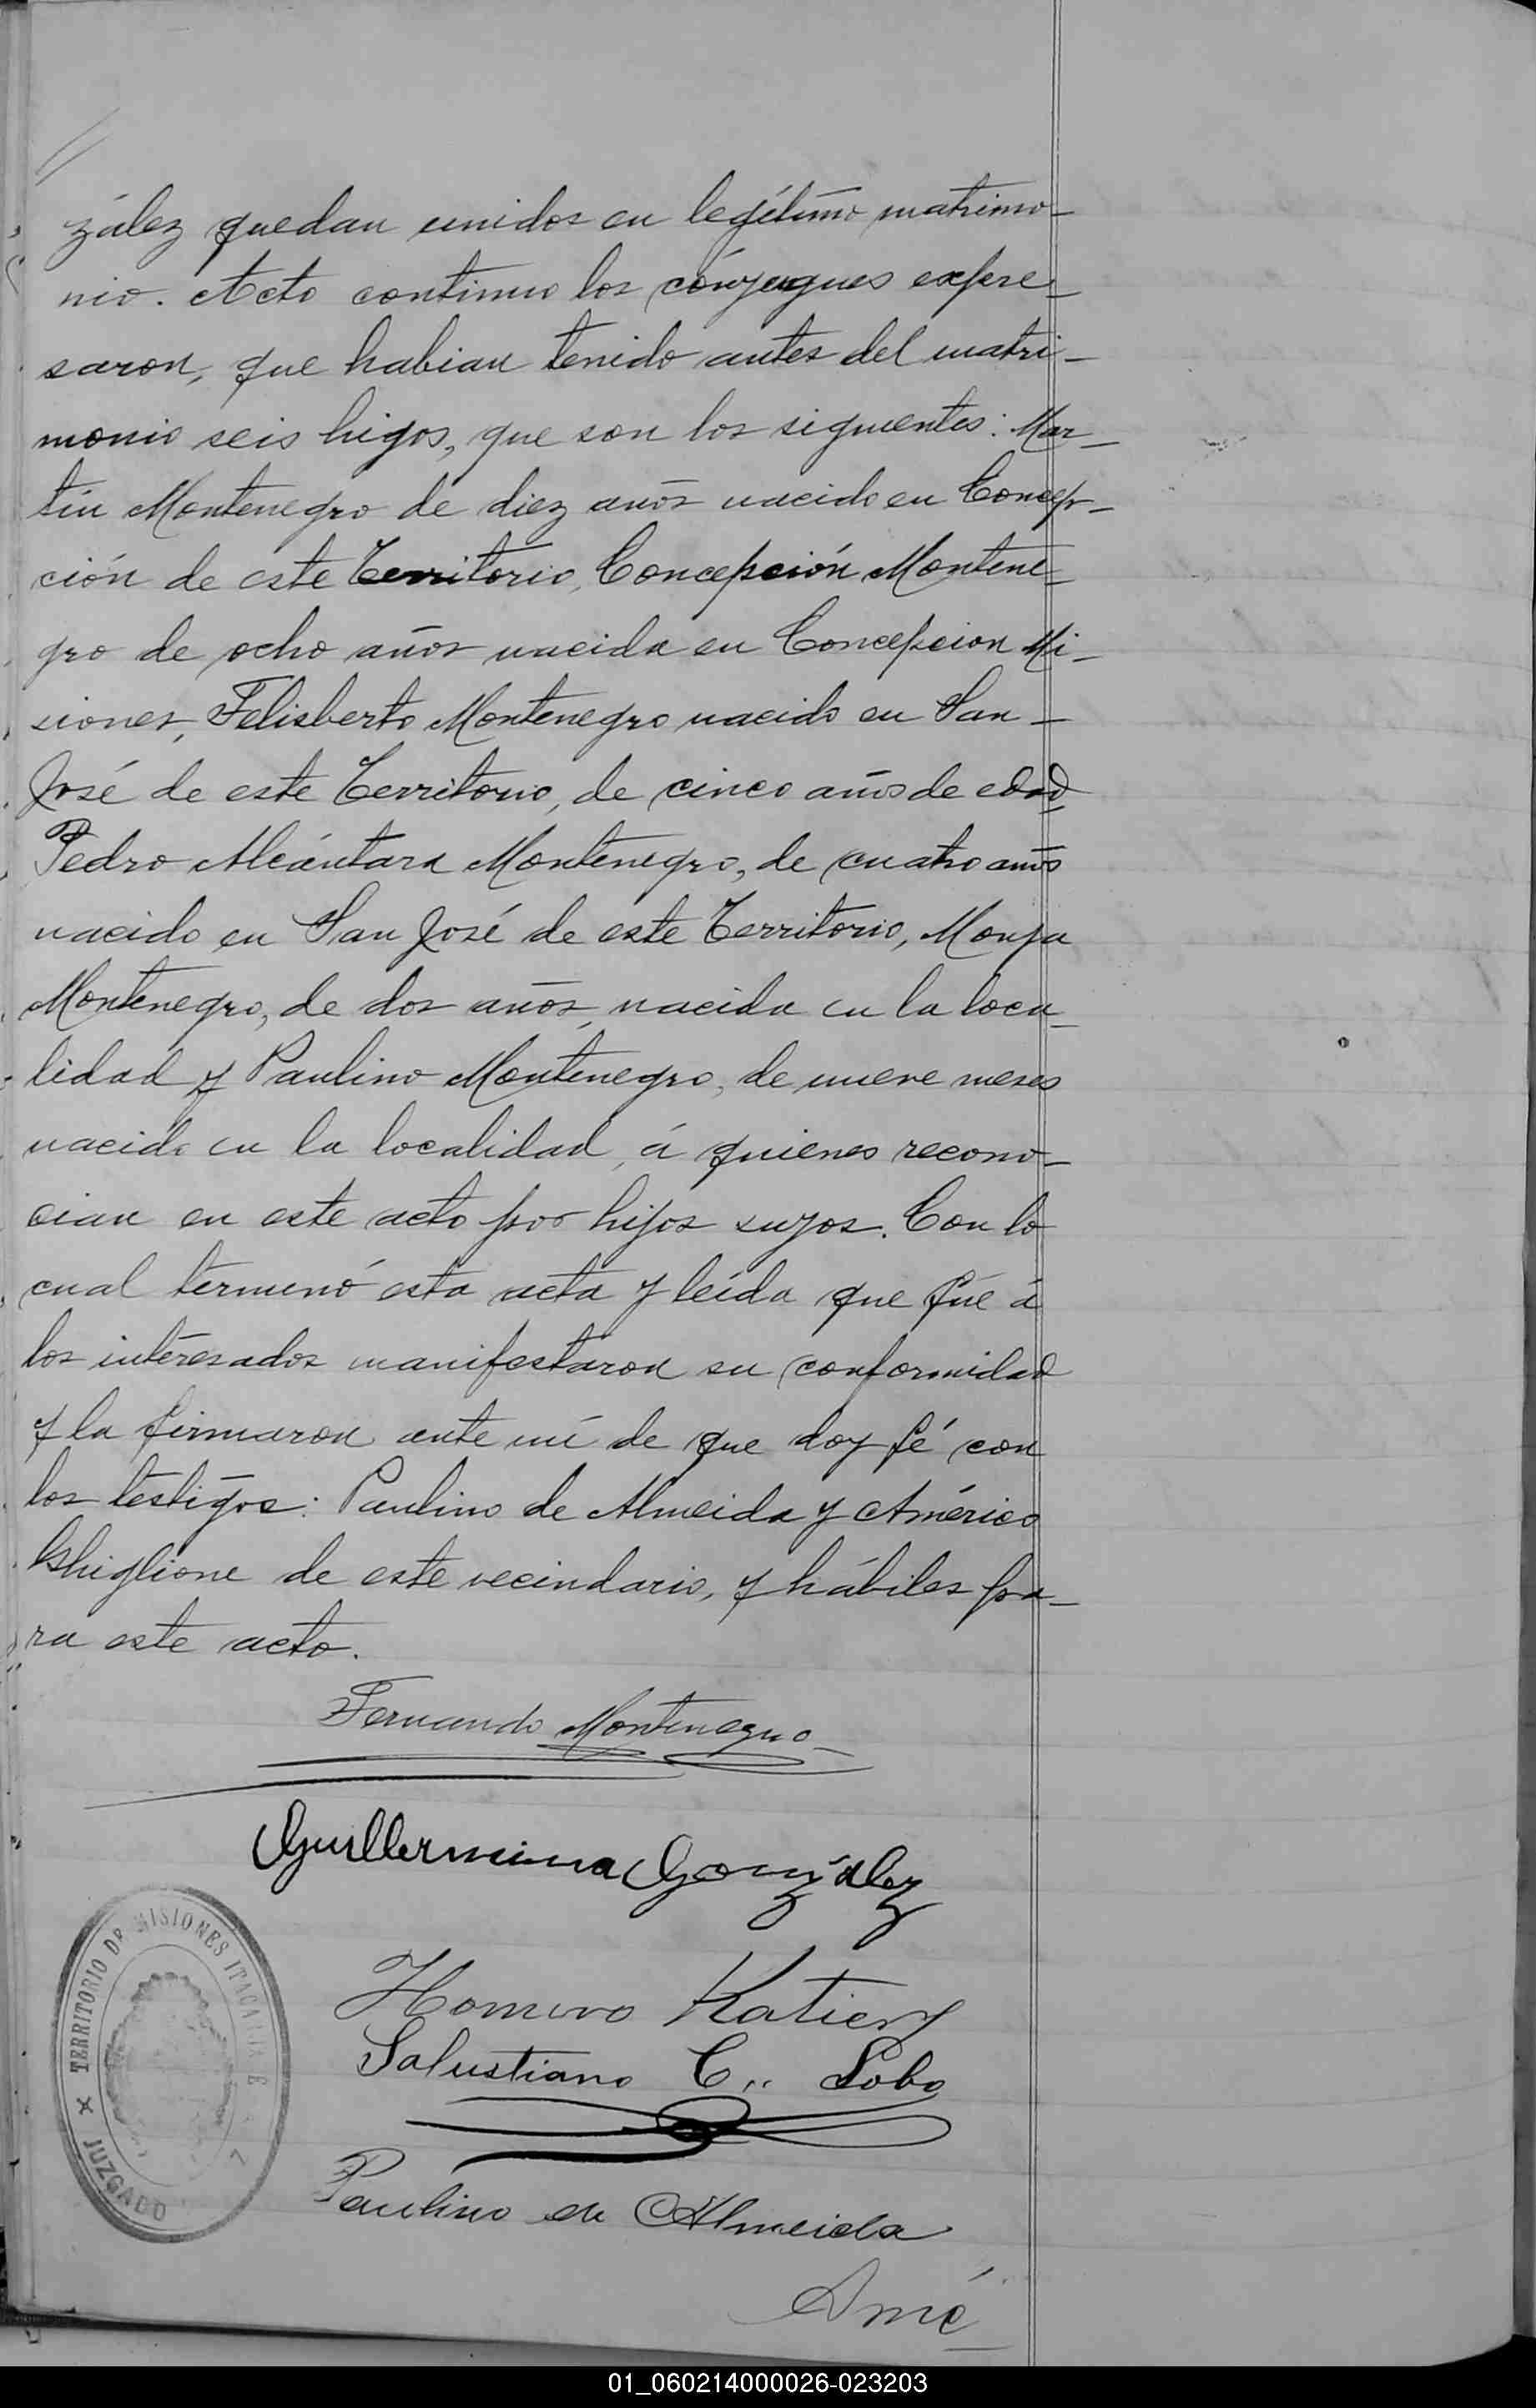 zález quedan unidos en legítimo matrimo-
nio. Acto continuo los cónyugues expre-
saron, que habian tenido antes del matri-
monio seis higos, que son los siguientes: Mar-
tín Montenegro de diez años nacido en Concep-
ción de este Territorio, Concepción Montene-
gro de ocho años nacida en Concepcion Mi-
siones, Felisberto Montenegro nacido en San-
José de este Territorio, de cinco años de edad,
Pedro Alcántara Montenegro, de cuatro años
nacido en San José de este Territorio,
Montenegro, de dos años, nacida en la loca-
lidad y Paulino Montenegro, de nueve meses
nacido en la localidad, á quienes recono-
cian en este acto por hijos suyos. Con lo
cual terminó esta acta y leída que fué á
los interesados manifestaron su conformidad
y la firmaron ante mí de que doy fé con
los testigos: Paulino de Almeida y Américo
Ghiglione de este vecindario, y hábiles pa-
ra este acto.
Fernando Montenegro
Guillermina González
Homero
Salustiano C. Lobo
Paulino de Almeida
Amé-
TERRITORIO DE MISIONES
JUZGADO
01_060214000026-023203